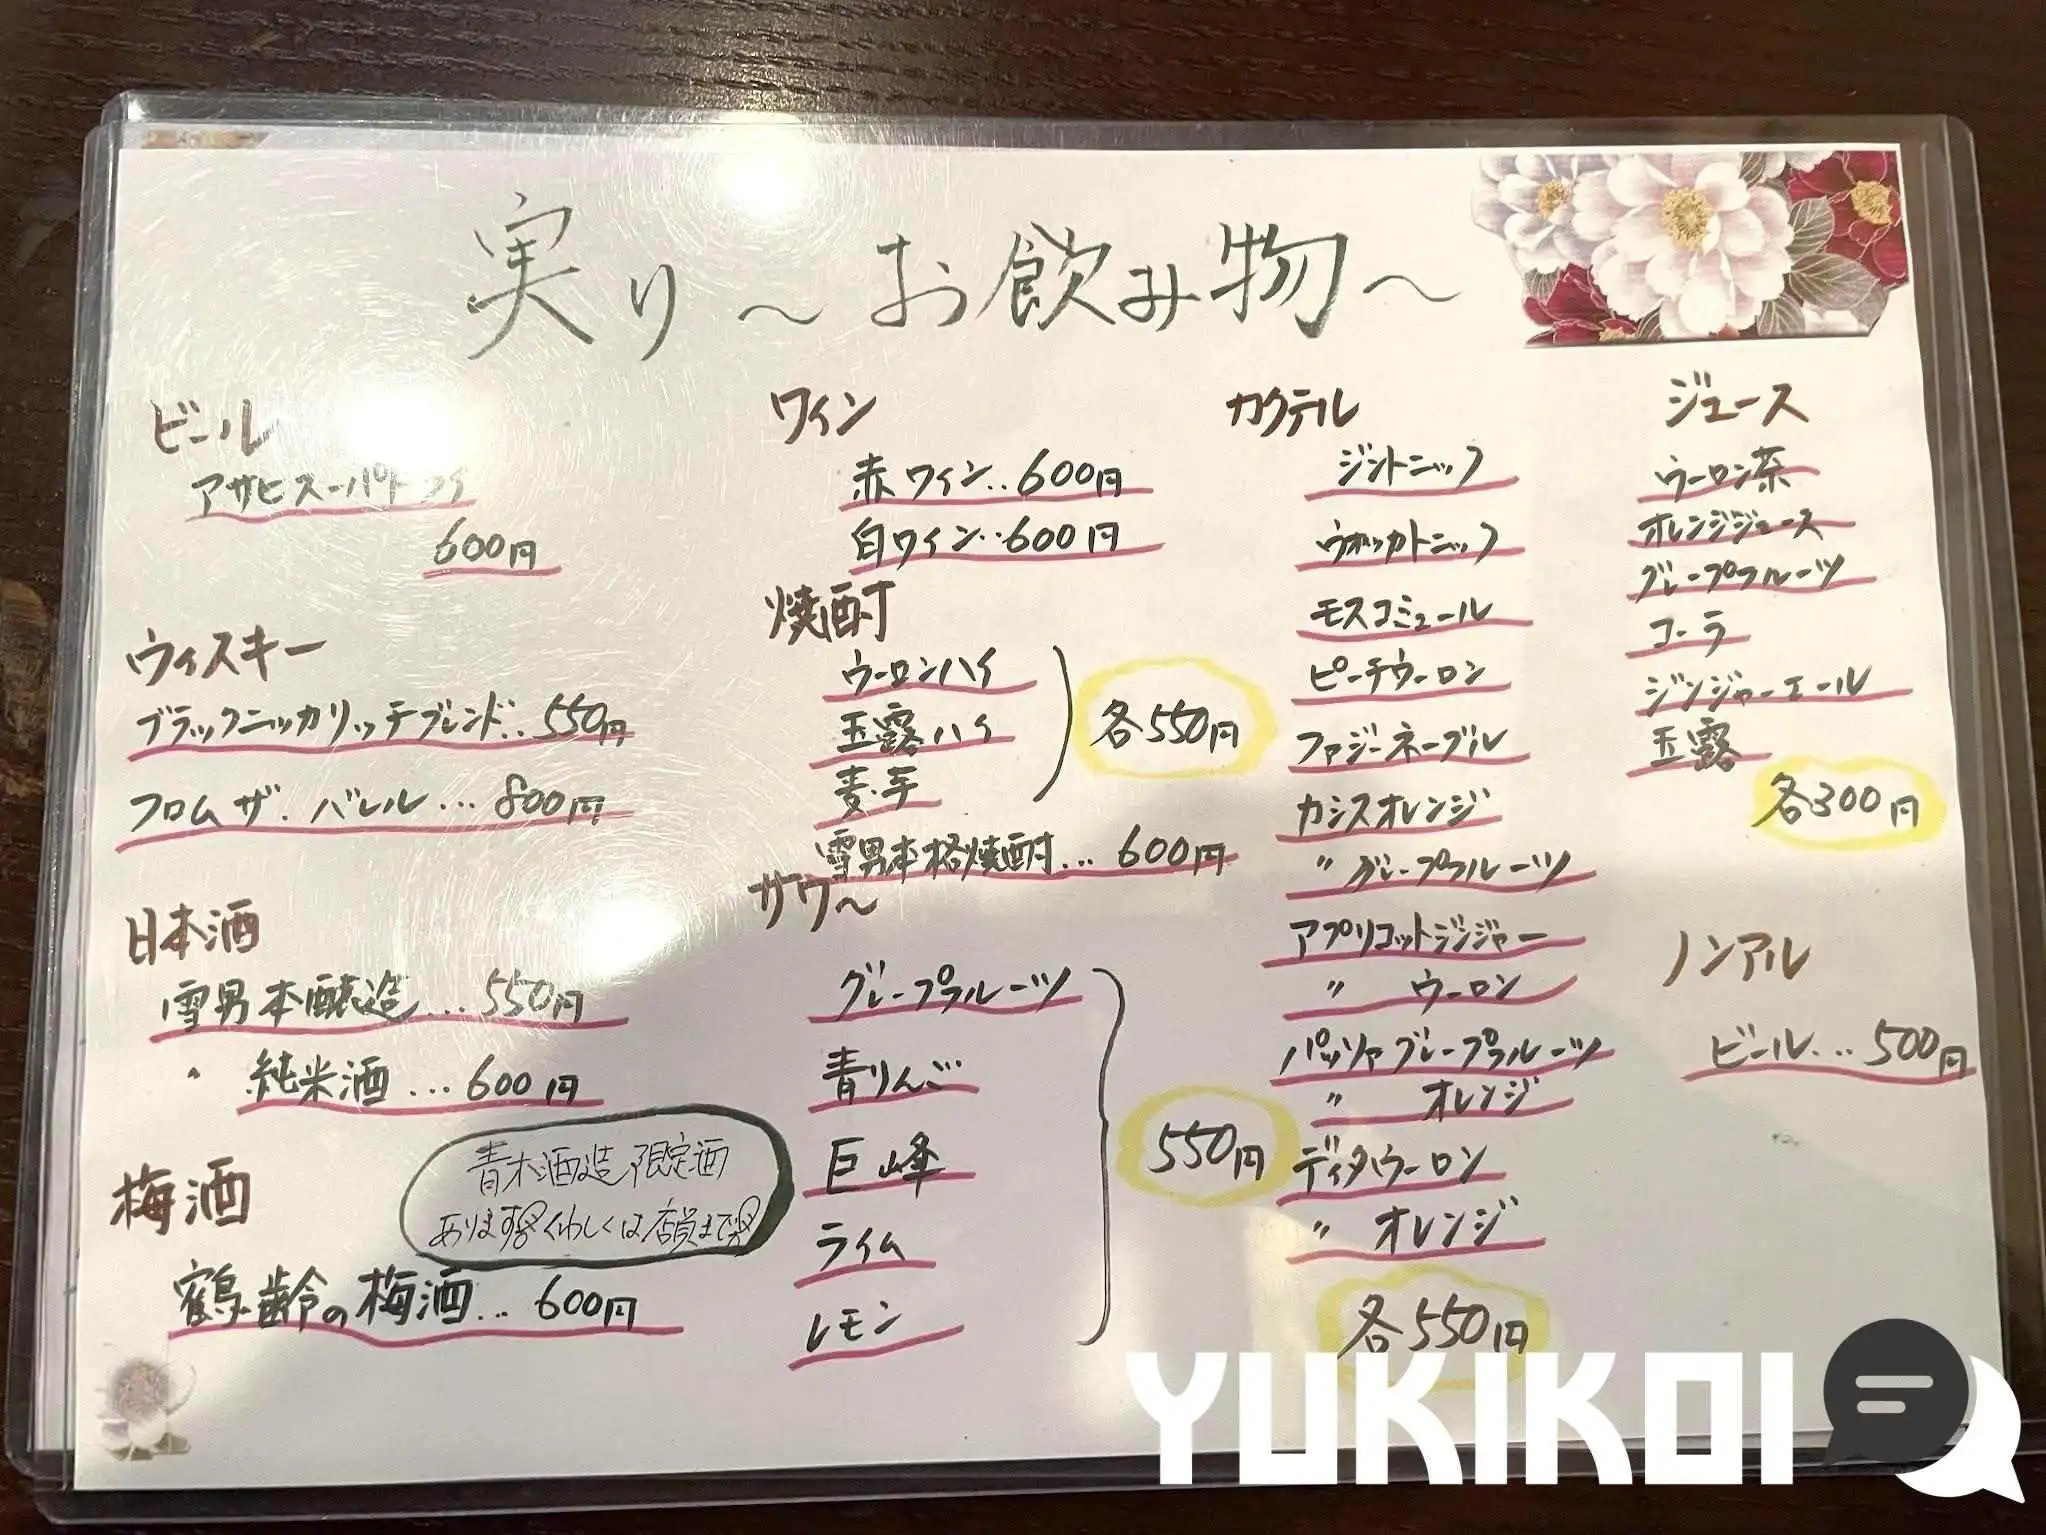 実り～お飲み物～
ビール
アサヒスーパードライ
600円
ウィスキー
ブラックニッカリッチブレンド..550円
フロム ザ・バレル...800円
日本酒
雪男本醸造...550円
〃 純米酒...600円
青木酒造限定酒
あります くわしくは店員まで
梅酒
鶴齢の梅酒...600円
ワイン
赤ワイン..600円
白ワイン..600円
焼酎
ウーロンハイ
玉露ハイ
麦・芋
各550円
雪男本格焼酎...600円
サワ～
グレープフルーツ
青りんご
巨峰
ライム
レモン
550円
カクテル
ジントニック
ウォッカトニック
モスコミュール
ピーチウーロン
ファジーネーブル
カシスオレンジ
〃 グレープフルーツ
アプリコットジンジャー
〃 ウーロン
パッソァグレープフルーツ
〃 オレンジ
ディタウーロン
〃 オレンジ
各550円
ジュース
ウーロン茶
オレンジジュース
グレープフルーツ
コーラ
ジンジャーエール
玉露
各300円
ノンアル
ビール...500円
YUKIKOI